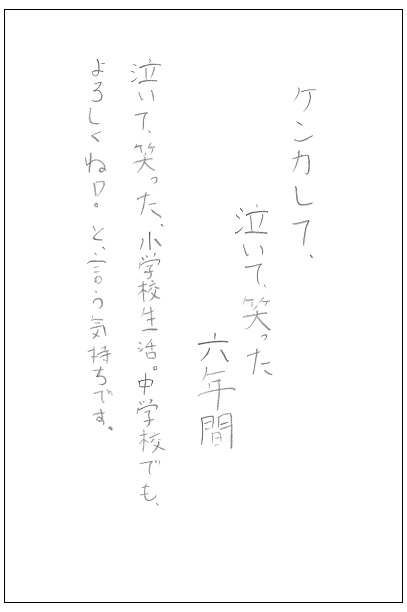 ケンカして、
泣いて、笑った
六年間
泣いて、笑った、小学校生活。中学校でも、
よろしくね!。と、言う気持ちです。